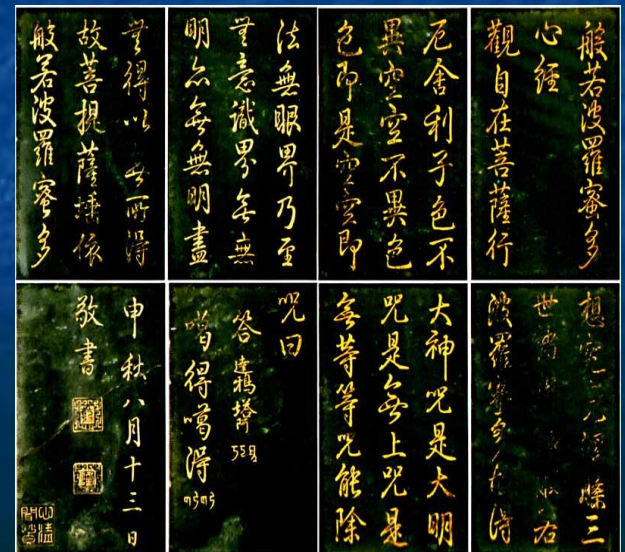 般若波羅蜜多
心經
觀自在菩薩行
厄舍利子色不
異空空不異色
色即是空空即
法無眼界乃至
無意識界無無
明亦無無明盡
無得以無所得
故菩提薩埵依
般若波羅蜜多
想究竟涅槃三
世諸 般若
波羅蜜多故得
大神咒是大明
咒是無上咒是
無等等咒能除
咒曰
答達鴉塔
噶得噶得
申秋八月十三日
敬書